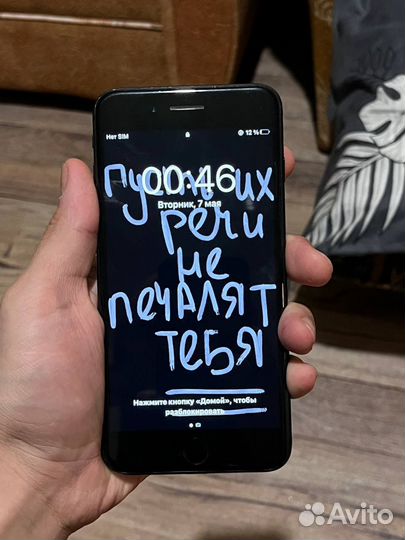 Нет SIM
12 %
00:46
Вторник, 7 мая
пусть их
речи
не
печалят
тебя
Нажмите кнопку «Домой», чтобы
разблокировать
Avito